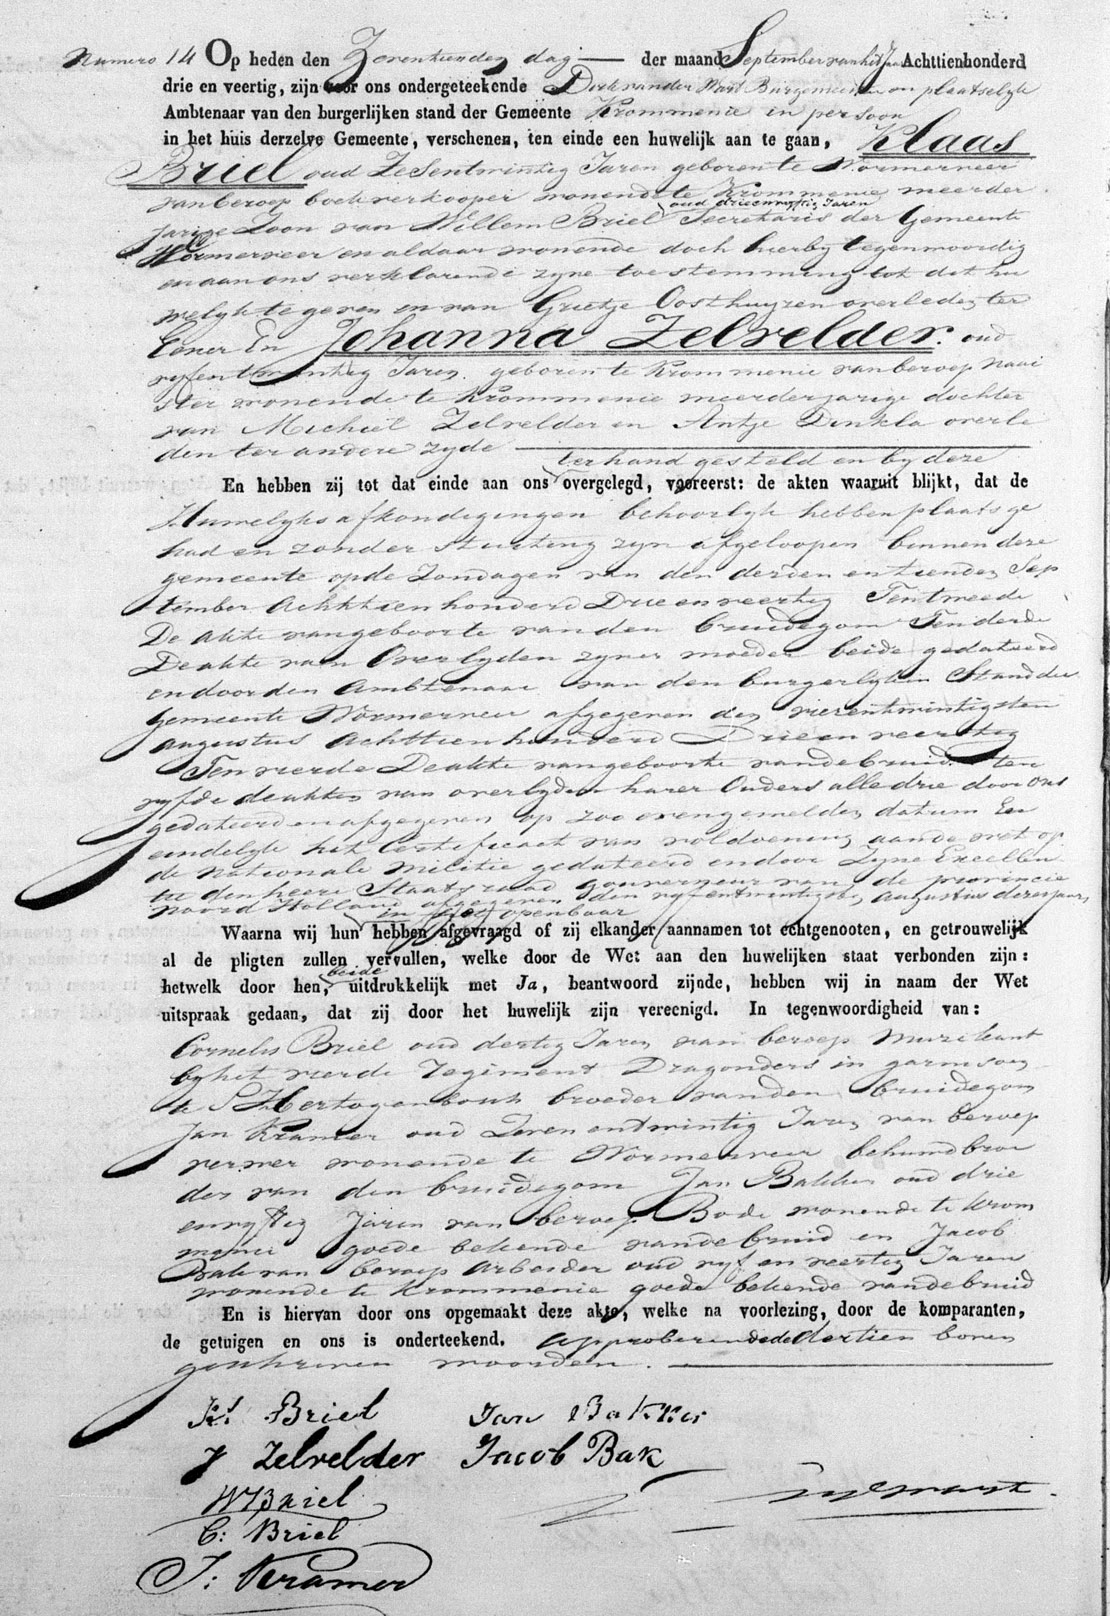 Numero 14 Op heden den Zeventienden dag der maand September van het Jaar Achttienhonderd
drie en veertig, zijn voor ons ondergeteekende Dirk van der Mart Burgemeester en plaatselyk
Ambtenaar van den burgerlijken stand der Gemeënte Krommenie in persoon
in het huis derzelve Gemeente, verschenen, ten einde een huwelijk aan te gaan, Klaas
Briel oud Zesentwintig Jaren geboren te Wormerveer
van beroep boekverkooper wonende te Krommenie meerder
oud drieenvyftig Jaren
jarige Zoon van Willem Briel Secretaris der Gemeente
Wormerveer en aldaar wonende doch hierby tegenwoordig
en aan ons verklarende zyne toestemming tot dit hu
welyk te geven en van Grietje Oosthuyzen overleden ter
Eener En Johanna Zelvelder. oud
vyfentwintig Jaren geboren te Krommenie van beroep Naai
ster wonende te Krommenie meerderjarige dochter
van Michiel Zelvelder en Antje Dinkla overle
den ter andere zyde
ter hand gesteld en by deze
En hebben zij tot dat einde aan ons overgelegd, vooreerst: de akten waaruit blijkt, dat de
Huwelyks afkondigingen behoorlyk hebben plaats ge
had en zonder stuiting zyn afgeloopen binnen deze
gemeente op de Zondagen van den derden en tienden Sep
tember Achttien honderd Drie en veertig Ten tweede
De akte van geboorte van den bruidegom Ten derde
De akte van Overlyden zyner moeder beide gedateerd
en door den Ambtenaar van den burgerlyken Stand der
Gemeente Wormerveer afgegeven den vierentwintigsten
augustus Achttien honderd Drie en veertig
Ten vierde De akte van geboorte van de bruid ten
vyfde de akten van overlyden harer Ouders alle drie door ons
gedateerd en afgegeven op zoo evengemelden datum En
eindelyk het Certificaat van voldoening aan de wet op
de Nationale Militie gedateerd en door Zyne Excellen
tie den heere Staatsraad Gouverneur van de provincie
Noord Holland afgegeven den vyfentwintigsten Augustus dezes jaars
in het openbaar
Waarna wij hun hebben afgevraagd of zij elkander aannamen tot echtgenooten, en getrouwelijk
al de pligten zullen vervullen, welke door de Wet aan den huwelijken staat verbonden zijn:
beide
hetwelk door hen, uitdrukkelijk met Ja, beantwoord zijnde, hebben wij in naam der Wet
uitspraak gedaan, dat zij door het huwelijk zijn vereenigd. In tegenwoordigheid van:
Cornelis Briel oud dertig Jaren van beroep Muzikant
by het vierde Regiment Dragonders in garnisoen
te S Hertogenbosch broeder van den bruidegom
Jan Kramer oud Zeven entwintig Jaren van beroep
verwer wonende te Wormerveer behuwdbroe
der van den bruidegom Jan Bakker oud drie
envyftig Jaren van beroep Bode wonende te Krom
menie goede bekende van de bruid en Jacob
Bak van beroep Arbeider oud vyf en veertig Jaren
wonende te Krommenie goede bekende van de bruid
En is hiervan door ons opgemaakt deze akte, welke na voorlezing, door de komparanten,
de getuigen en ons is onderteekend. Approberende de dertien boven
geschreven woorden.
Kl Briel Jan Bakker
J Zelvelder Jacob Bak
W Briel
C: Briel
J: Kramer